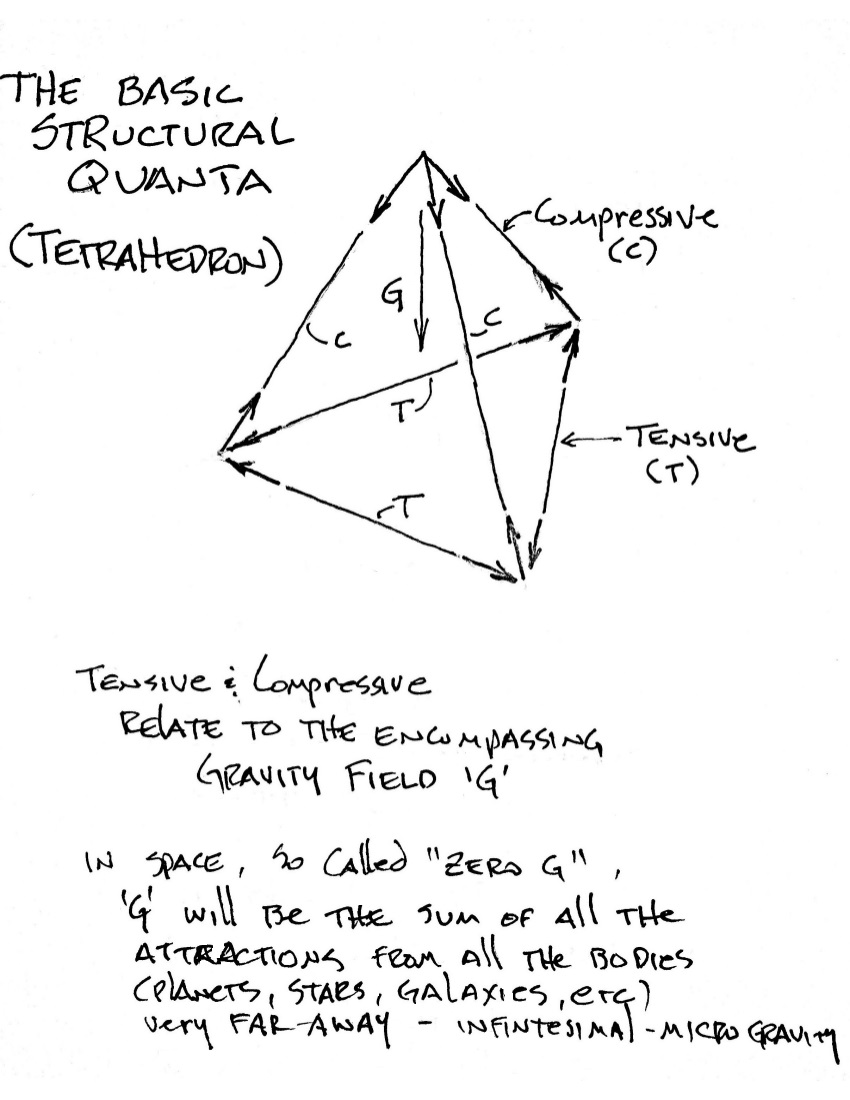 THE BASIC
STRUCTURAL
QUANTA
(TETRAHEDRON)
Compressive
(C)
G
C
C
T
TENSIVE
(T)
T
TENSIVE & Compressive
RELATE TO THE ENCOMPASSING
GRAVITY FIELD 'G'
IN SPACE, SO CALLED "ZERO G",
'G' will BE THE SUM OF All THE
ATTRACTIONS FROM All THE BODIES
(PLANETS, STARS, GALAXIES, etc)
very FAR AWAY - INFINTESIMAl - MICRO GRAVITY